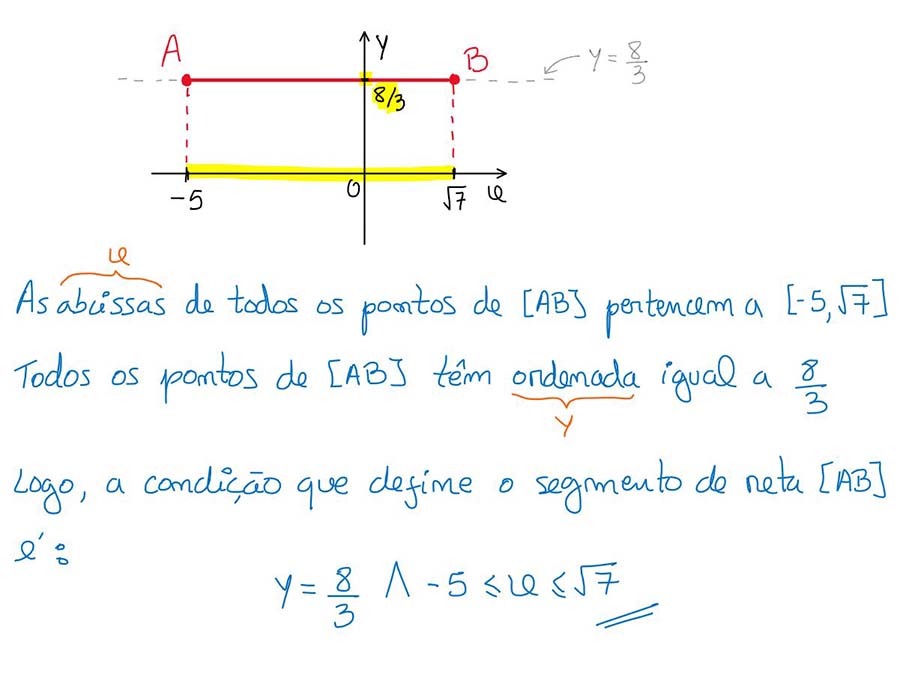 A
y
B
y = 8/3
8/3
-5
0
√7
x
x
As abcissas de todos os pontos de [AB] pertencem a [-5,√7]
Todos os pontos de [AB] têm ordenada igual a 8/3
y
Logo, a condição que define o segmento de reta [AB]
é:
y = 8/3 ∧ -5 ≤ x ≤ √7